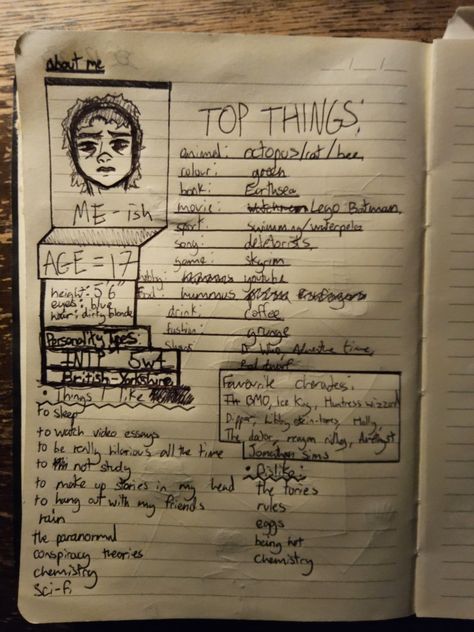 about me
ME-ish
AGE = 17
height: 5'6"
eyes: blue
hair: dirty blonde
Personality types:
INTP 5w4
British-Yorkshire
TOP THINGS:
animal: octopus/rat/bee
colour: green
book: Earthsea
movie: Lego Batman
sport: swimming/waterpolo
song: detectorists
game: skyrim
hobby: youtube
food: hummus
drink: coffee
fashion: grunge
shows: Dr Who Adventure time,
Red dwarf
Favourite characters:
BMO, Ice King, Huntress wizzard
Dipper, Molly,
The doctor, Amethyst
Jonathan Sims
• Things I like
to sleep
to watch video essays
to be really hilarious all the time
to not study
to make up stories in my head
to hang out with my friends
rain
the paranormal
conspiracy theories
chemistry
Sci-fi
• Dislike:
the tories
rules
eggs
being hot
chemistry